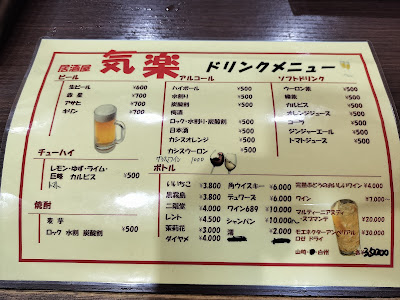 居酒屋 気楽 ドリンクメニュー
ビール
生ビール ¥600
¥700
アサヒ ¥700
キリン ¥700
チューハイ
レモン・ゆず・ライム・
巨峰 カルピス ¥500
焼酎
麦 芋
ロック 水割 炭酸割 ¥500
アルコール
ハイボール ¥500
水割り ¥500
炭酸割 ¥500
梅酒
ロック・水割り・炭酸割 ¥500
日本酒 ¥500
カシスオレンジ ¥500
カシスウーロン ¥500
グラスワイン
ソフトドリンク
ウーロン茶 ¥500
緑茶 ¥500
カルピス ¥500
オレンジジュース ¥500
コーラ ¥500
ジンジャーエール ¥500
トマトジュース ¥500
ボトル
いいちこ ¥3.800
黒霧島 ¥3.800
二階堂 ¥3.800
レント ¥4.500
茉莉花 ¥3.500
ダイヤメ ¥4.000
角ウイスキー ¥6.000
デュワーズ ¥6.000
ワイン689 ¥10.000
シャンパン ¥10.000
澪 ¥2.000
完熟ぶどうのおいしいワイン ¥4.000
ワイン ¥7.000
マルティーニアスティ
・スプマンテ ¥20.000
モエネクターアンペリアル
ロゼ ドライ ¥30.000
山崎・ 白州